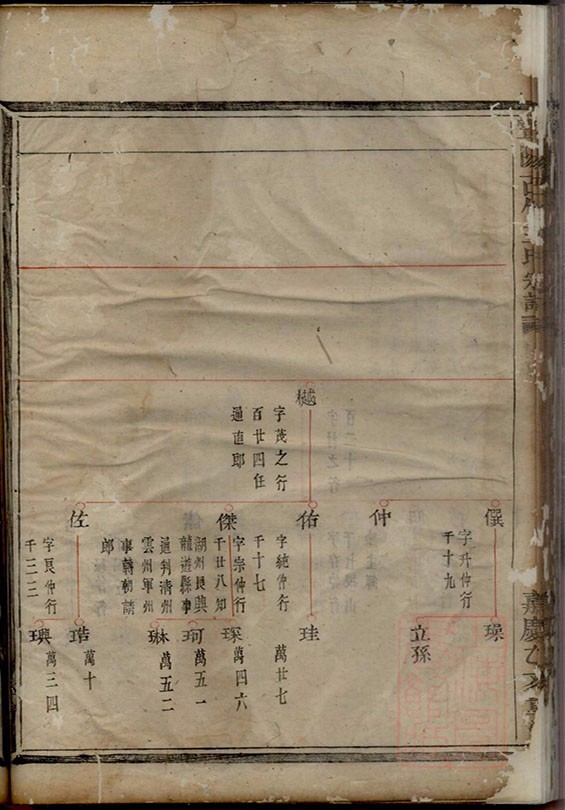 樾
字茂之行
百廿四任
通直郎
僎
字升仲行
千十九
仲
佑
字純仲行
千十七
傑
字宗仲行
千廿八知
湖州長興
龍遊縣事
通判清州
雲州軍州
事轉朝請
郎
佐
字良仲行
千三二
璪
立孫
珪
萬廿七
琛
萬四六
珂
萬五一
琳
萬五二
琥
萬十
璵
萬三四
嘉慶乙